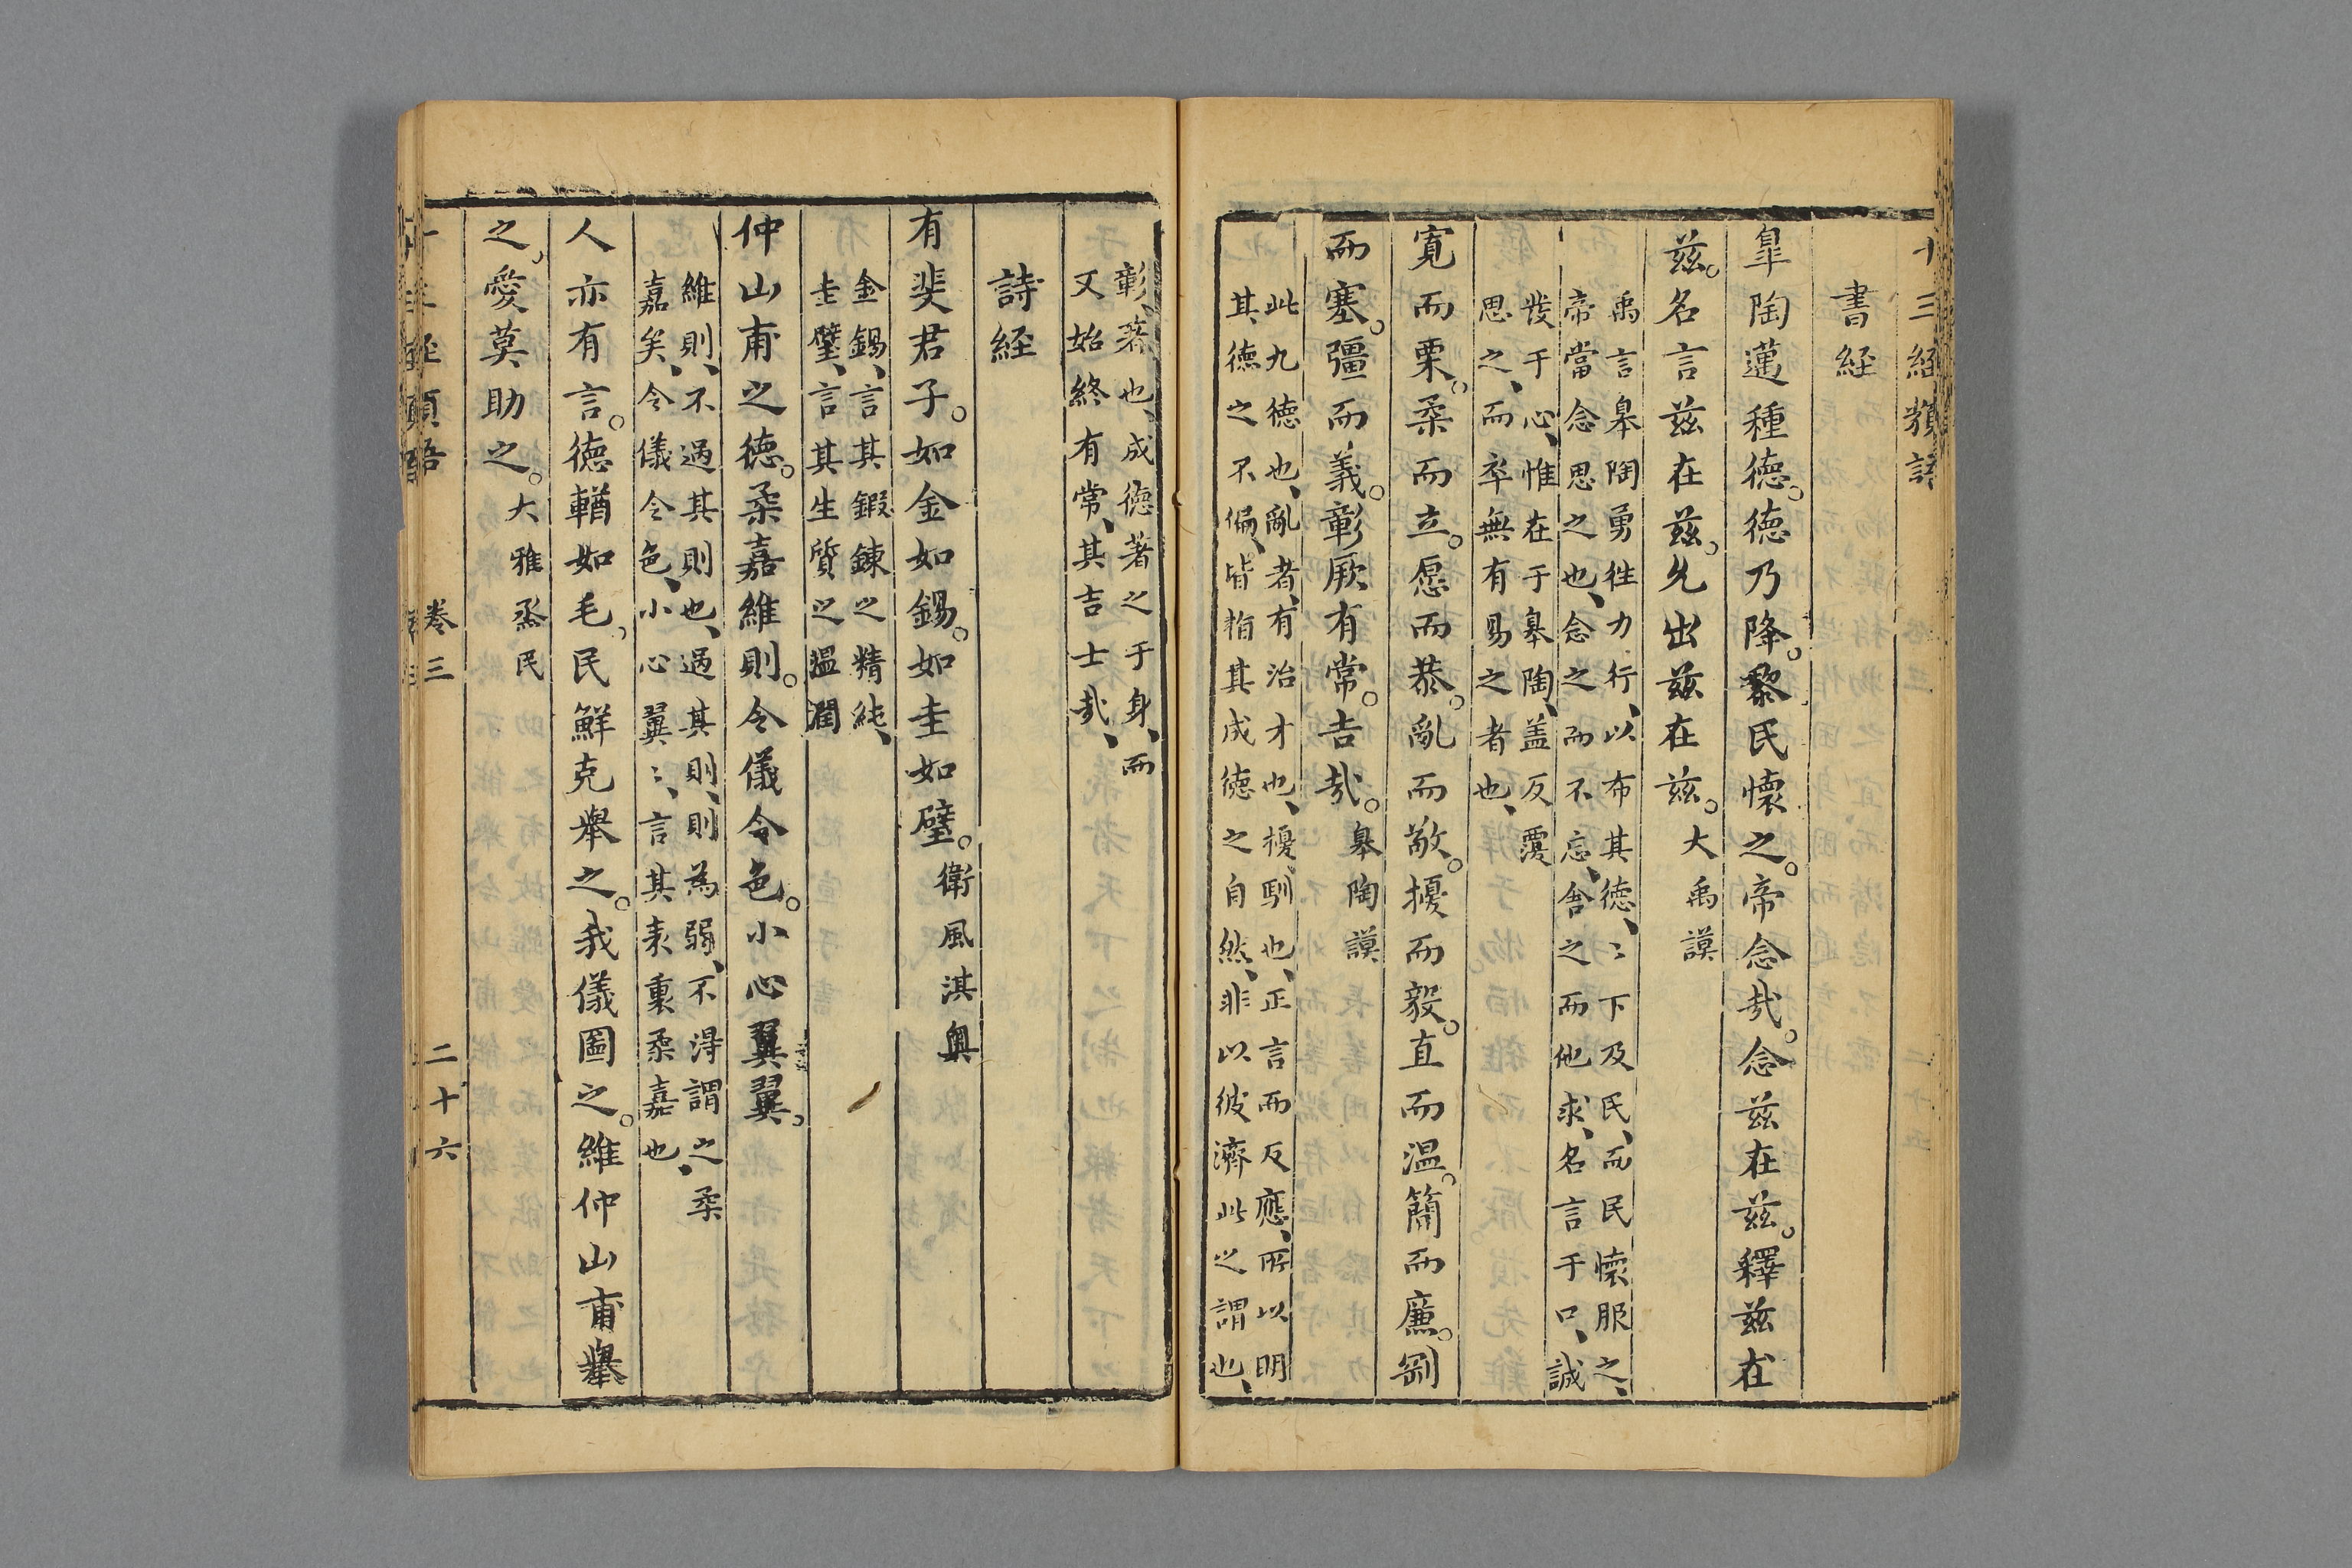 十三経類語
書経
皐陶邁種徳。徳乃降。黎民懷之。帝念哉。念茲在茲。釋茲在
茲。名言茲在茲。允出茲在茲。大禹謨
禹言皋陶勇徃力行、以布其徳、〻下及民、而民懷服之、
帝當念思之也、念之而不忘、舎之而他求、名言于口、誠
發于心、惟在于皋陶、盖反覆
思之、而卒無有易之者也、
寛而栗。柔而立。愿而恭。亂而敬。擾而毅。直而温。簡而廉。剛
而塞。彊而義。彰厥有常。吉哉。皋陶謨
此九徳也、亂者、有治才也、擾馴也、正言而反應、所以明
其徳之不偏、皆指其成徳之自然、非以彼濟此之謂也、
彰、著也、成徳著之于身、而
又始終有常、其吉士哉、
詩経
有斐君子。如金如錫。如圭如璧。衛風淇奥
金錫、言其鍛鍊之精純、
圭璧、言其生質之温潤
仲山甫之徳。柔嘉維則。令儀令色。小心翼翼。
維則、不過其則也、過其則、則為弱、不淂謂之柔
嘉矣、令儀令色、小心翼〻、言其表裏柔嘉也、
人亦有言。徳輶如毛。民鮮克舉之。我儀圖之。維仲山甫舉
之。愛莫助之。大雅烝民
卷三
二十六